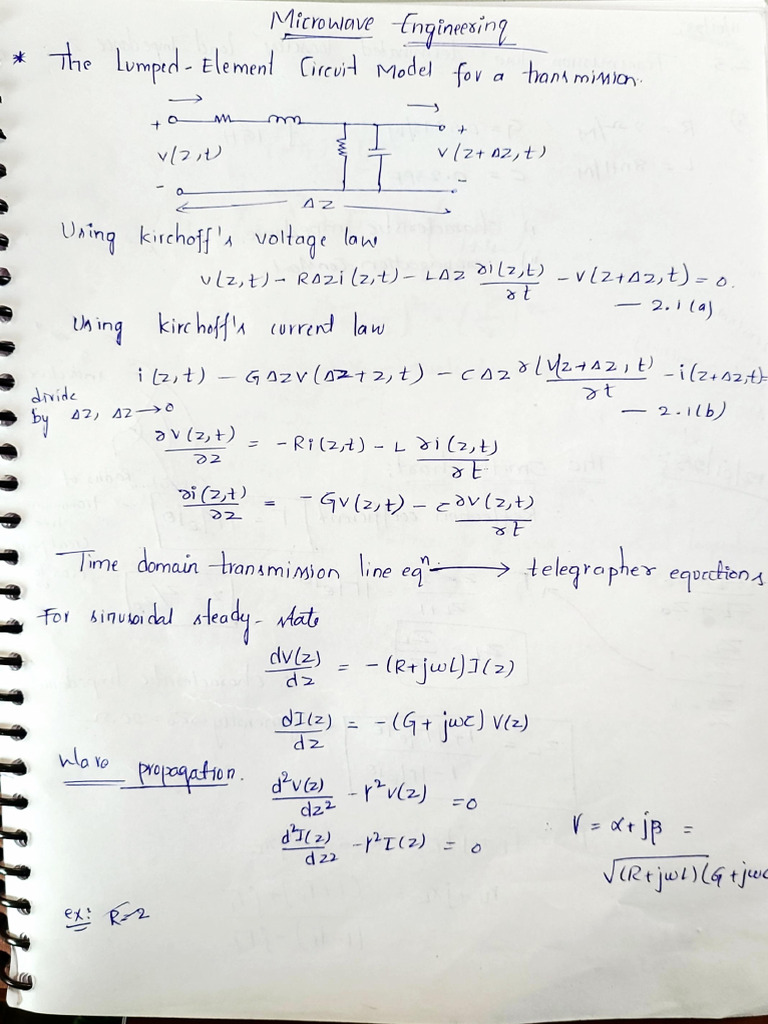 Microwave Engineering
* The Lumped-Element Circuit Model for a transmission.
+ +
v(z,t) v(z+Δz,t)
- -
Δz
Using kirchoff's voltage law
v(z,t) - RΔz i(z,t) - LΔz ∂i(z,t)/∂t - v(z+Δz,t) = 0.
— 2.1(a)
Using kirchoff's current law
i(z,t) - GΔz v(Δz+z,t) - CΔz ∂(v(z+Δz,t)/∂t - i(z+Δz,t)=
— 2.1(b)
divide
by Δz, Δz→0
∂v(z,t)/∂z = -Ri(z,t) - L ∂i(z,t)/∂t
∂i(z,t)/∂z = -Gv(z,t) - C ∂v(z,t)/∂t
Time domain transmission line eqⁿ. → telegrapher equations
For sinusoidal steady-state
dV(z)/dz = -(R+jωL)I(z)
dI(z)/dz = -(G+jωC) V(z)
Wave propagation.
d²V(z)/dz² - γ²V(z) = 0
d²I(z)/dz² - γ²I(z) = 0
∴ γ = α+jβ =
√(R+jωL)(G+jωC
ex: R=2